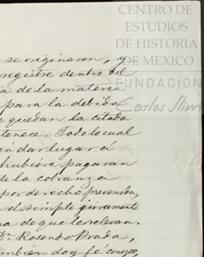 CENTRO DE
ESTUDIOS
DE HISTORIA
DE MEXICO
FUNDACIÓN
Carlos Slim
se originaron, y
registre dentro del
a de la materia
para la debida
quedan la citada
tenece. Todo lo cual
en dar lugar a
hubiere pagaran
de la cobranza
por derecho prevenida,
el simple juramento
na de que le relevan.
Dn. Rosendo Prada,
tambien doy fé conozco,